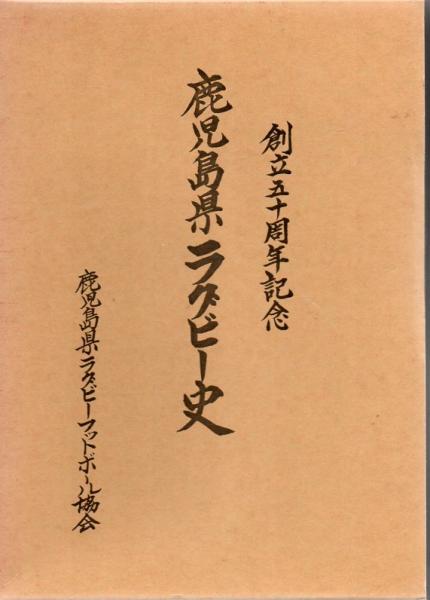 創立五十周年記念
鹿児島県ラグビー史
鹿児島県ラグビーフットボール協会